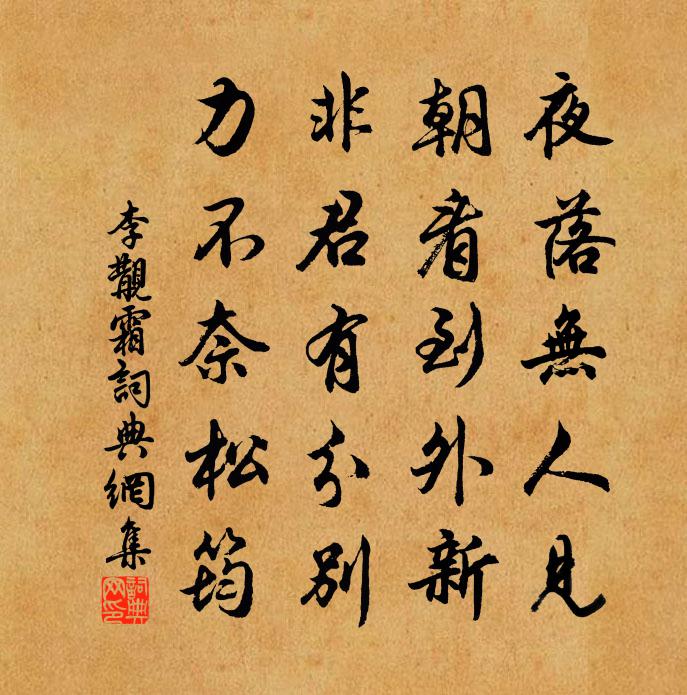 夜落無人見
朝看到外新
非君有分別
力不奈松筠
李覯霜詞典網集
詞典網印